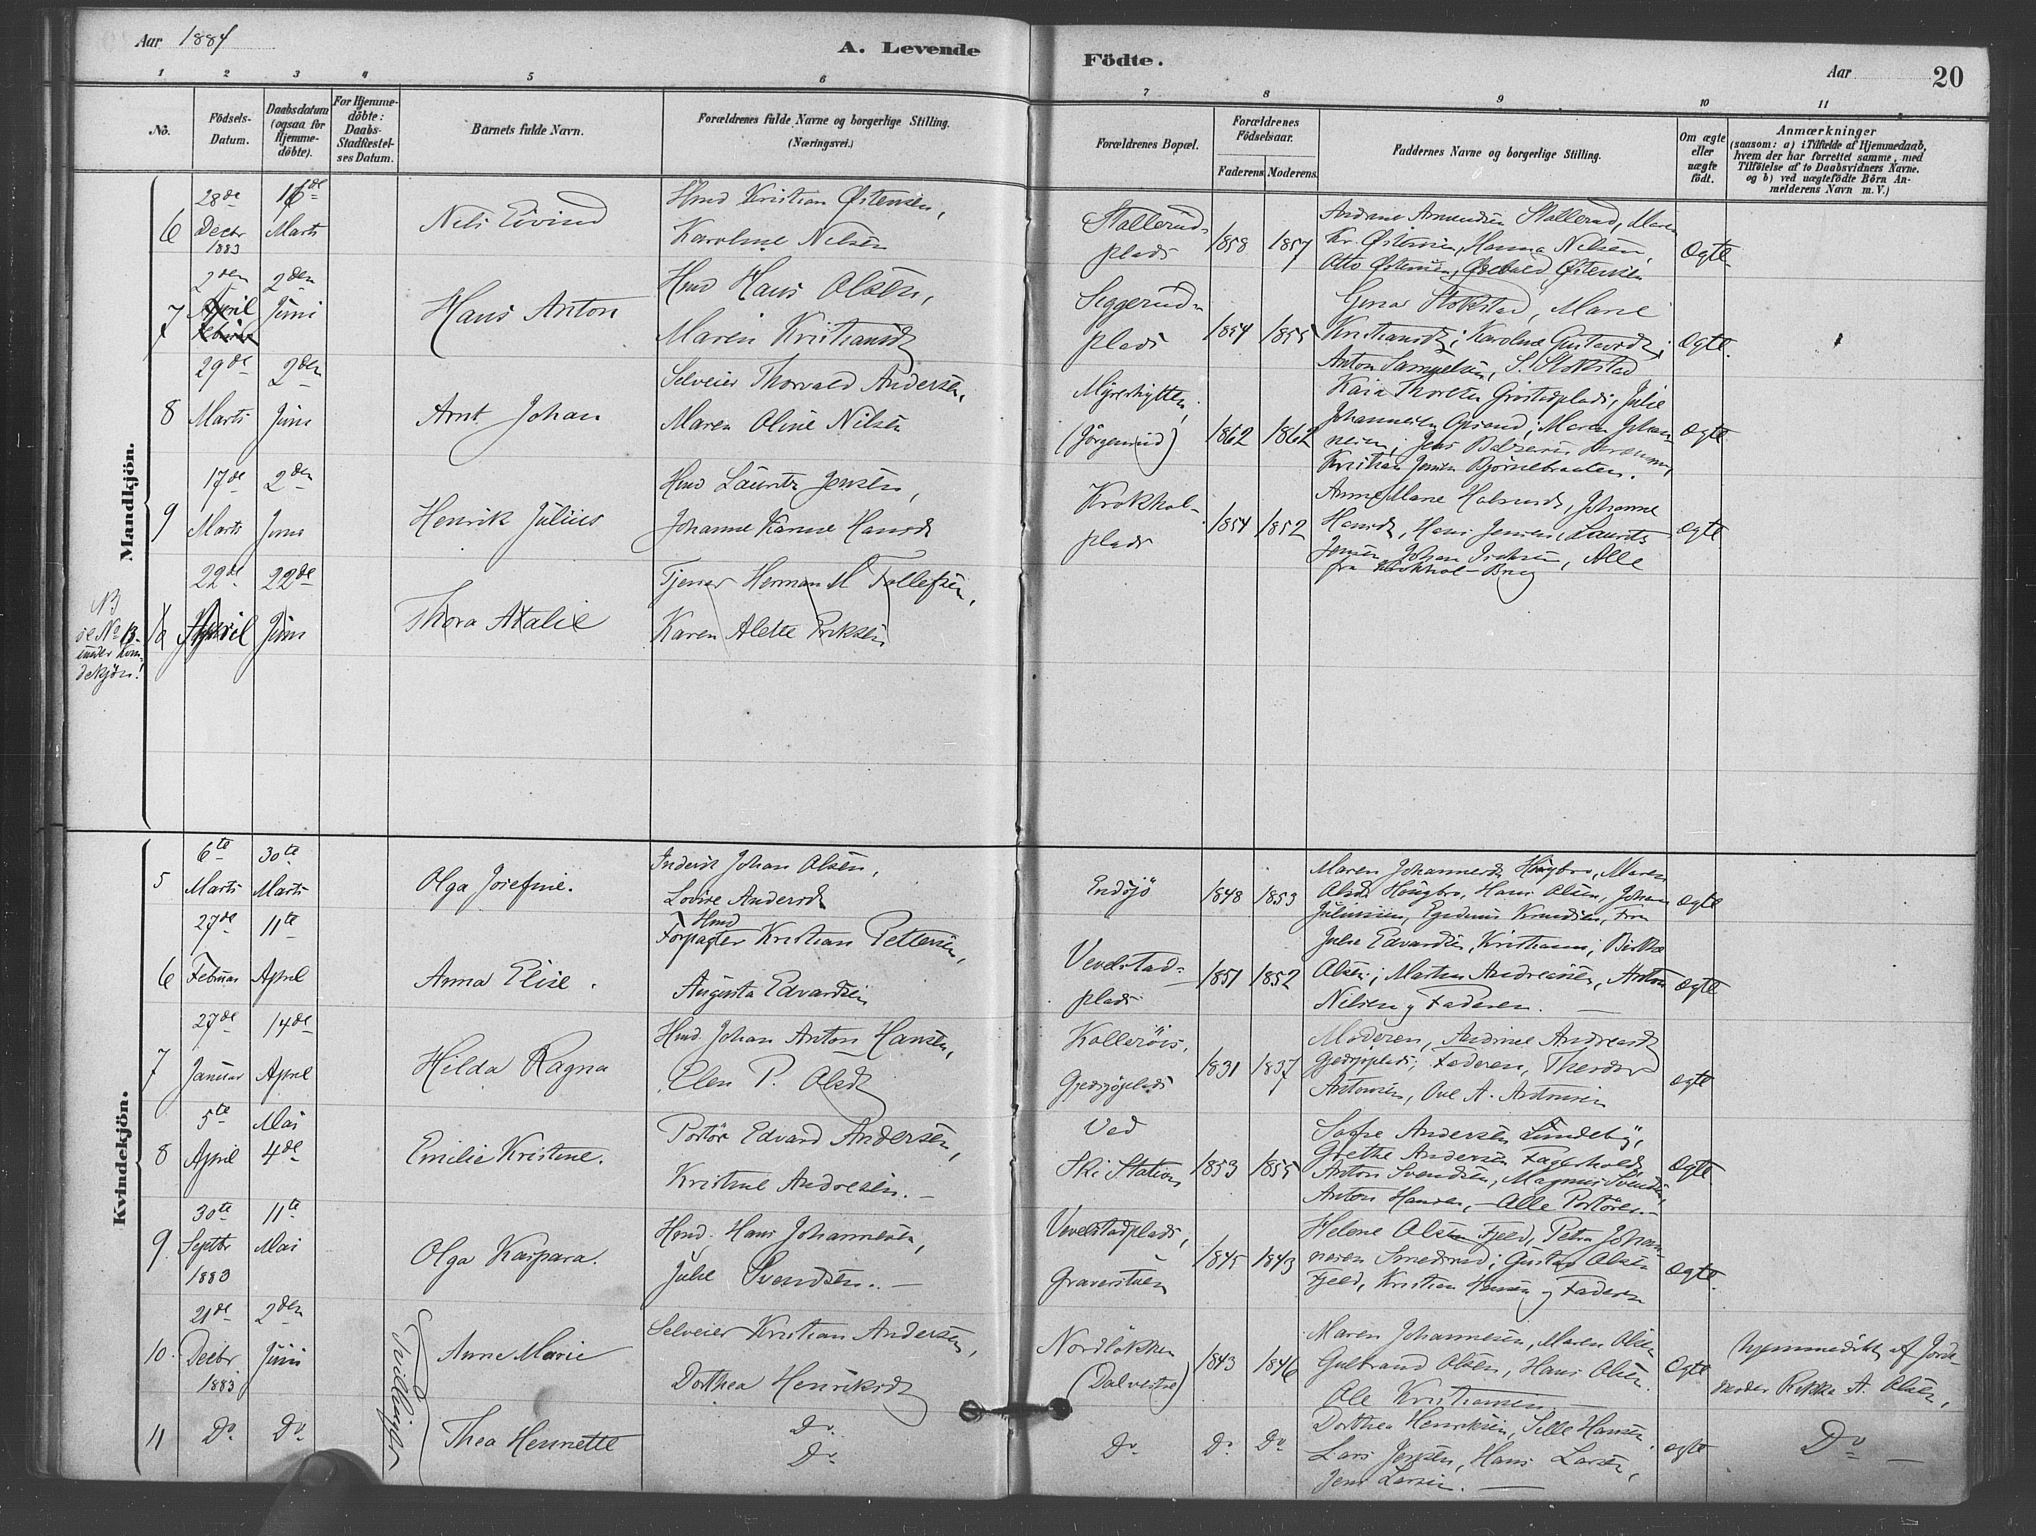 Aar 1884
A. Levende
Födte.
Aar
20
1 2 3 4 5 6 7 8 9 10 11
No.
Födsels-Datum.
Daabsdatum (ogsaa for Hjemme-döbte).
For Hjemme-döbte: Daabs-Stadfæstel-ses Datum.
Barnets fulde Navn.
Forældrenes fulde Navne og borgerlige Stilling. (Næringsvei.)
Forældrenes Bopæl.
Forældrenes Födselsaar.
Faderens
Moderens.
Faddernes Navne og borgerlige Stilling.
Om ægte eller uægte födt.
Anmærkninger
(saasom: a) i Tilfælde af Hjemmedaab,
hvem der har forrettet samme, med
Tilföielse af to Daabsvidners Navne.
og b) ved uægtefödte Börn An-
melderens Navn m. V.)
Mandkjön.
6
28de Decbr 1883
16de Marts
Nils Eivind
Hmd Kristian Østensen,
Karoline Nilsen
Stallerud-
plads
1858
1857
Andrane Amundsen Stallerud, Maren
Kr. Østensen, Hanna Nilsen,
Otto Østensen, Østensen
Ogte
7
2den April
2den Juni
Hans Anton
Hmd Hans Olsen,
Maren Kristiansdt
Seggerud-
plads
1854
1855
Gina Stokstad, Marie
Kristiansdt; Karoline Gustavsdt;
Anton Samuelsen, S. Stokstad
Ogte.
8
29de Marts
2den Juni
Arnt Johan
Selveier Thorvald Andersen,
Maren Oline Nilsen
Myrerhytten,
(Jörgensrud)
1862
1862
Kaia Thorsen Grøstadplads, Julie
Johannesen Opsand; Maren Johan-
nesen; Jens
Kristian Jensen Bjørnebraaten.
Ogte
9
17de Marts
2den Juni
Henrik Julius
Hmd Lauritz Jensen,
Johanne Karine Hansdt
Krokhol-
plads
1854
1852
Anne Marie Halvorsdt, Johanne
Hansdt, Hans Jensen, Laurits
Jensen, Johan Isaksen, Alle
fra Krokhol-Brug
Ogte
NB
se No 13
under Kvin-
dekjön!
10
22de April
22de Juni
Thora Atalie
Tjener Herman M Tollefsen,
Karen Alette Eriksen
Kvindekjön.
5
6te Marts
30te Marts
Olga Josefine.
Inderst Johan Olsen,
Lovise Andersdt
Endsjö
1848
1853
Maren Johannesdt Haugbro, Maren
Olsdt Haugbro, Hans Olsen, Johan
Juliussen, Egidius Knudsen, Fru
Ogte
6
27de Februar
11te April
Anna Elise.
Hmd
Forpagter Kristian Pettersen,
Augusta Edvardsen
Vevelstad-
plads
1851
1852
Julie Edvardsen, Kristians; Birthe
Olsen; Martin Andreasen, Anton
Nilsen og Faderen.
Ogte
7
27de Januar
14de April
Hilda Ragna
Hmd. Johan Anton Hansen,
Elen P. Olsdt
Kolleröis,
Gjedsjöplads
1831
1837
Moderen, Andrine Andreasdt
Gjedsjöplads; Faderen, Theodor
Antonsen, Ole A. Antonsen
Ogte
8
5te April
Mai 4de
Emilie Kristine.
Portör Edvard Andersen,
Kristine Andresen.—
Ved
Ski Station
1853
1855
Sofie Andersen Lundeby,
Grethe Andersen Fagerholdt
Anton Svendsen, Magnus Svendsen,
Anton Hansen, — Alle Portörer.—
Ogte.
9
30te Septbr 1883
11te Mai
Olga Kaspara.
Hmd. Hans Johannesen,
Julie Svendsen.—
Vevelstadplads,
Graverstuen
1845
1843
Helene Olsen Fjeld, Petra Johan-
nesen Smedsrud; Gustav Olsen
Fjeld, Kristian Hansen og Faderen
Ogte.
10.
21de Decbr 1883
2den Juni
Tvillinger
Anne Marie
Selveier Kristian Andersen,
Dorthea Henriksdt
Nordlökken
(Dalvestre)
1843
1846
Maren Johannesen, Maren Olsen
Gulbrand Olsen, Hans Olsen.
Ole Kristiansen
Ogte
hjemmedöbt af Jorde-
moder Rikka A. Olsen,
11
Do
Do
Thea Henriette
Do
Do
Do
Do
Do
Dorthea Henriksen, Sille Hansen,
Lars Jensen, Hans Larsen,
Jens Larsen.—
Ogte
Do —